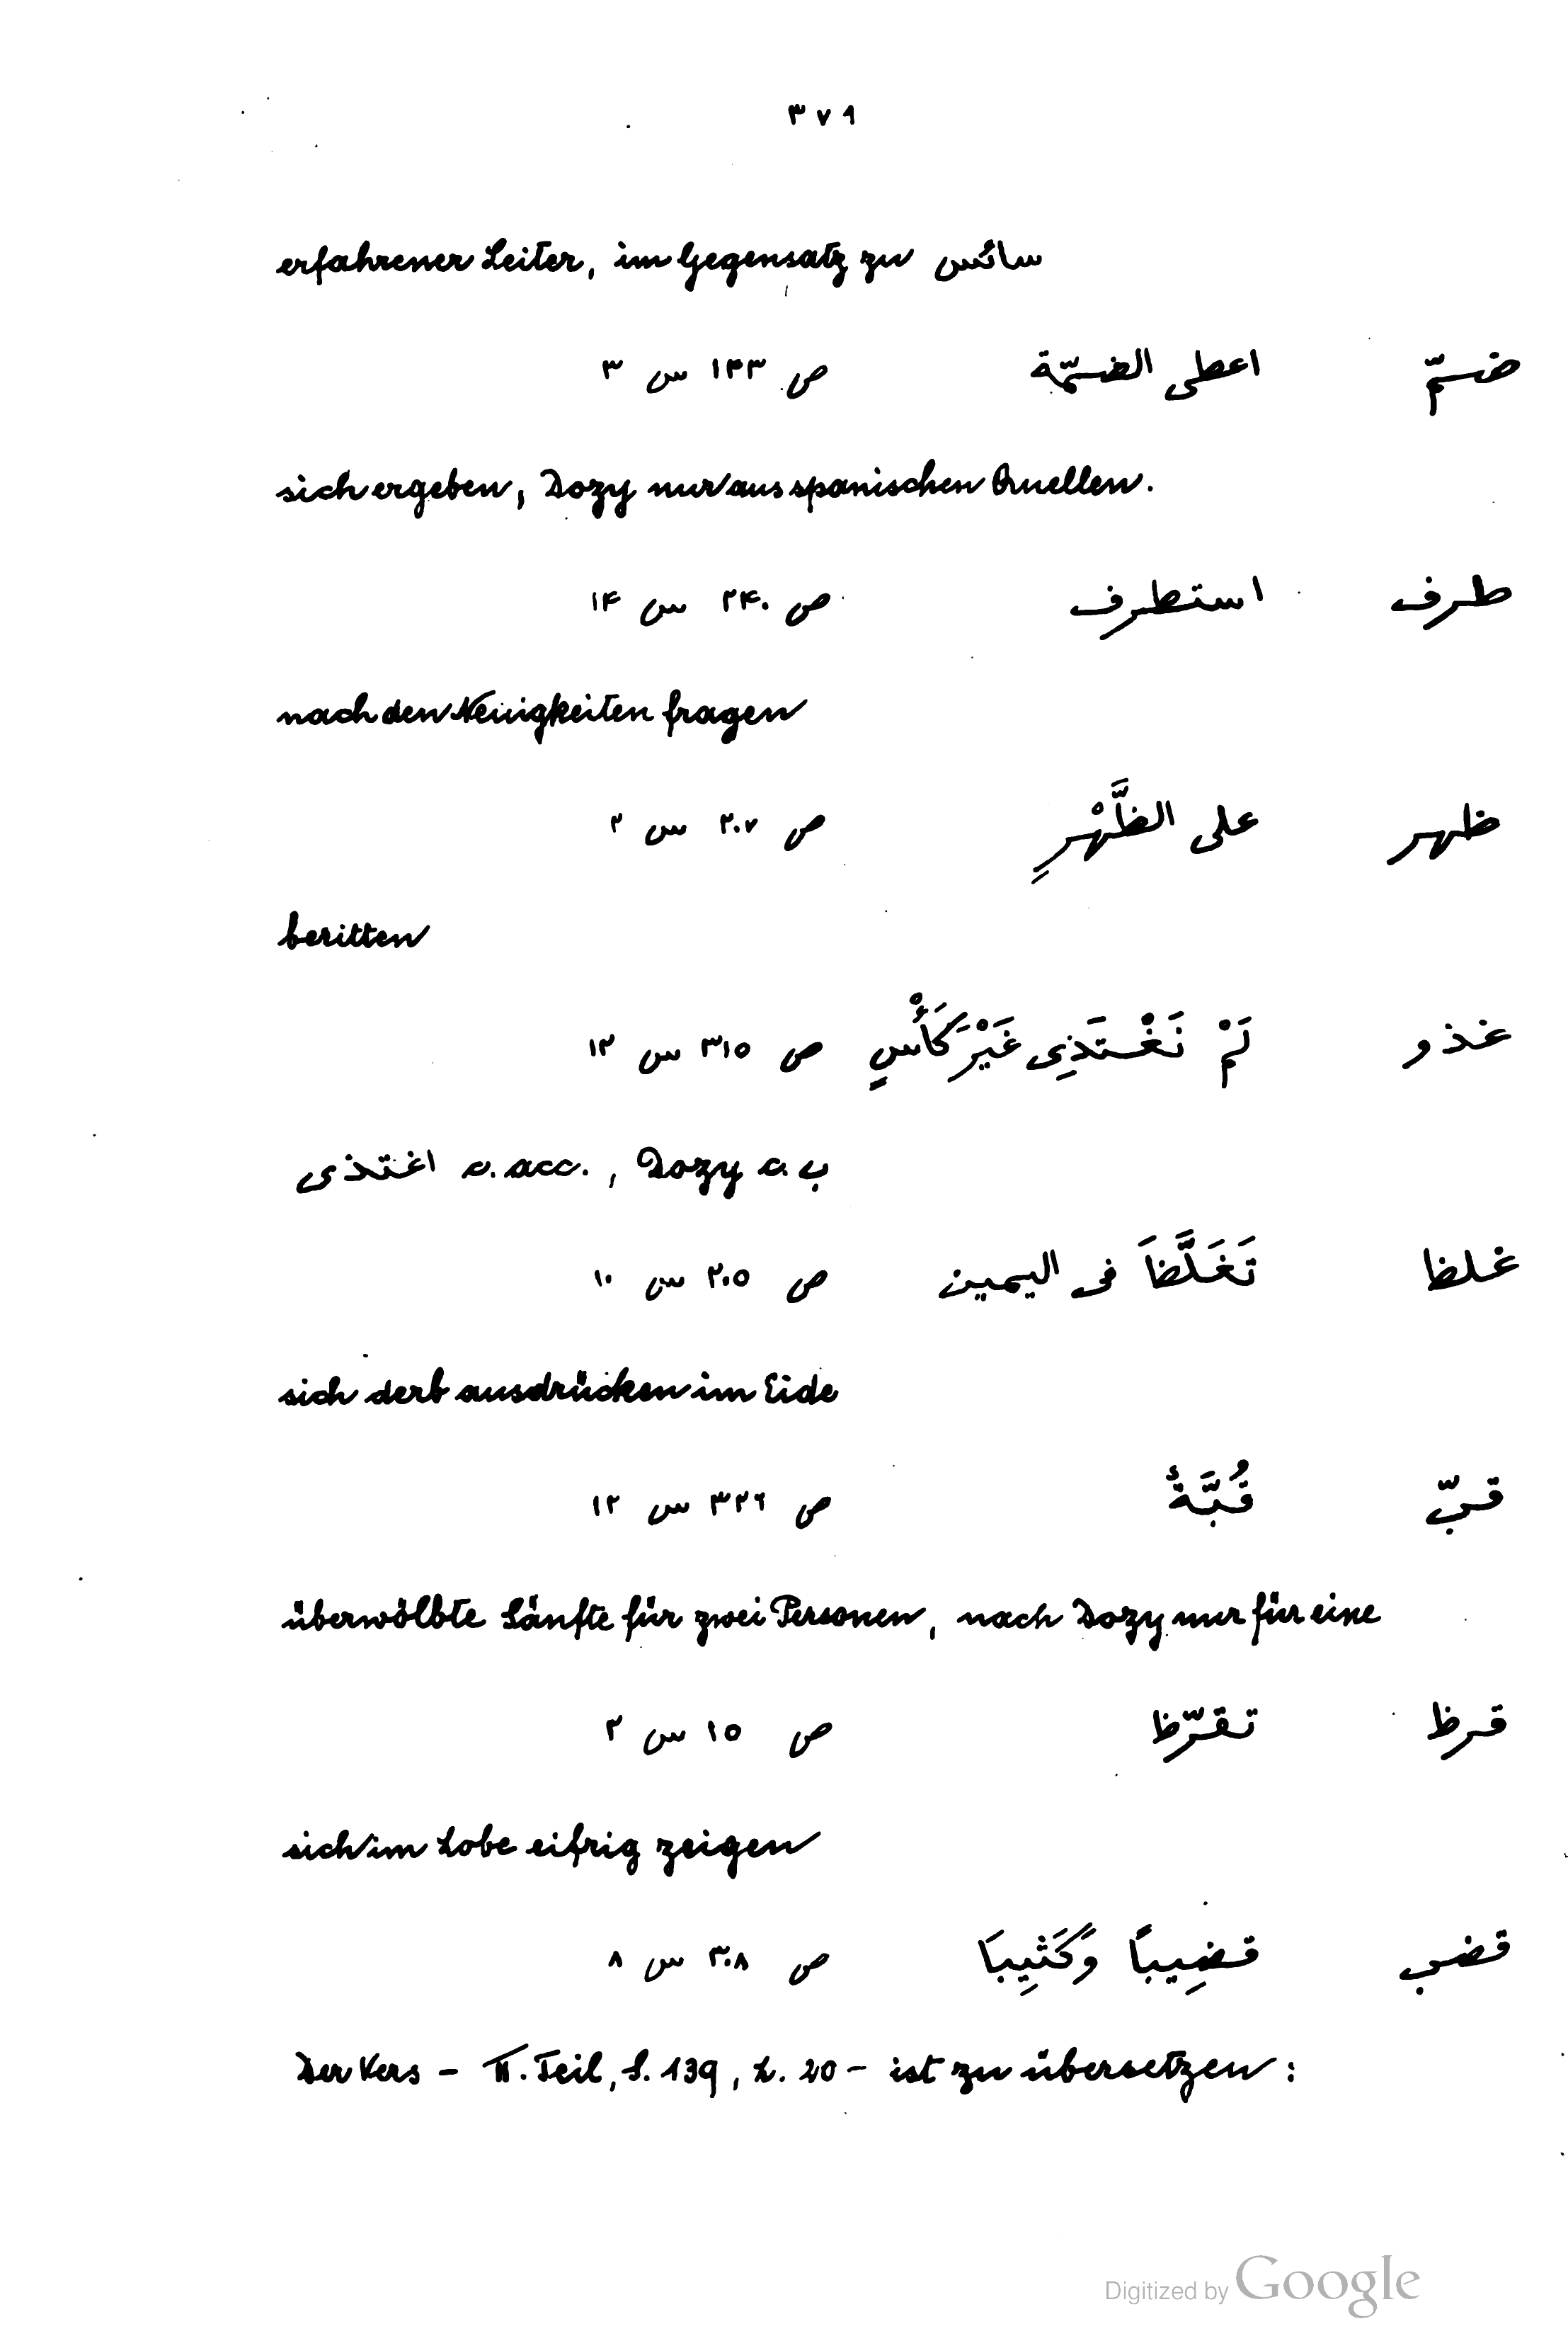 ٣٧٩
erfahrener Leiter, im Gegensatz zu سائس
ضمّ اعطى الضمّة ص ١٣٣ س ٣
sich ergeben, Dozy nur aus spanischen Quellen.
طرف استطرف ص ٢٤٠ س ١٤
nach den Neuigkeiten fragen
ظهر على الظَّهْرِ ص ٢٠٧ س ٢
beritten
غذو لَمْ نَغْتَذِى غَيْرَ كَأْسٍ ص ٣١٥ س ١٢
اغتذى c. acc., Dozy c. ب
غلظ تَغَلَّظَ فى اليمين ص ٢٠٥ س ١٠
sich derb ausdrücken im Eide
قبّ قُبَّةٌ ص ٣٢٦ س ١٢
überwölbte Sänfte für zwei Personen, nach Dozy nur für eine
قرظ تقرّظ ص ١٥ س ٢
sich im Lobe eifrig zeigen
قضب قضِيباً وَكَثِيبَا ص ٣٠٨ س ٨
Der Vers – II. Teil, S. 139, Z. 20 – ist zu übersetzen:
Digitized by Google